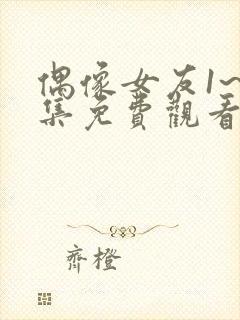 偶像女友1~
集免費觀看
齊橙